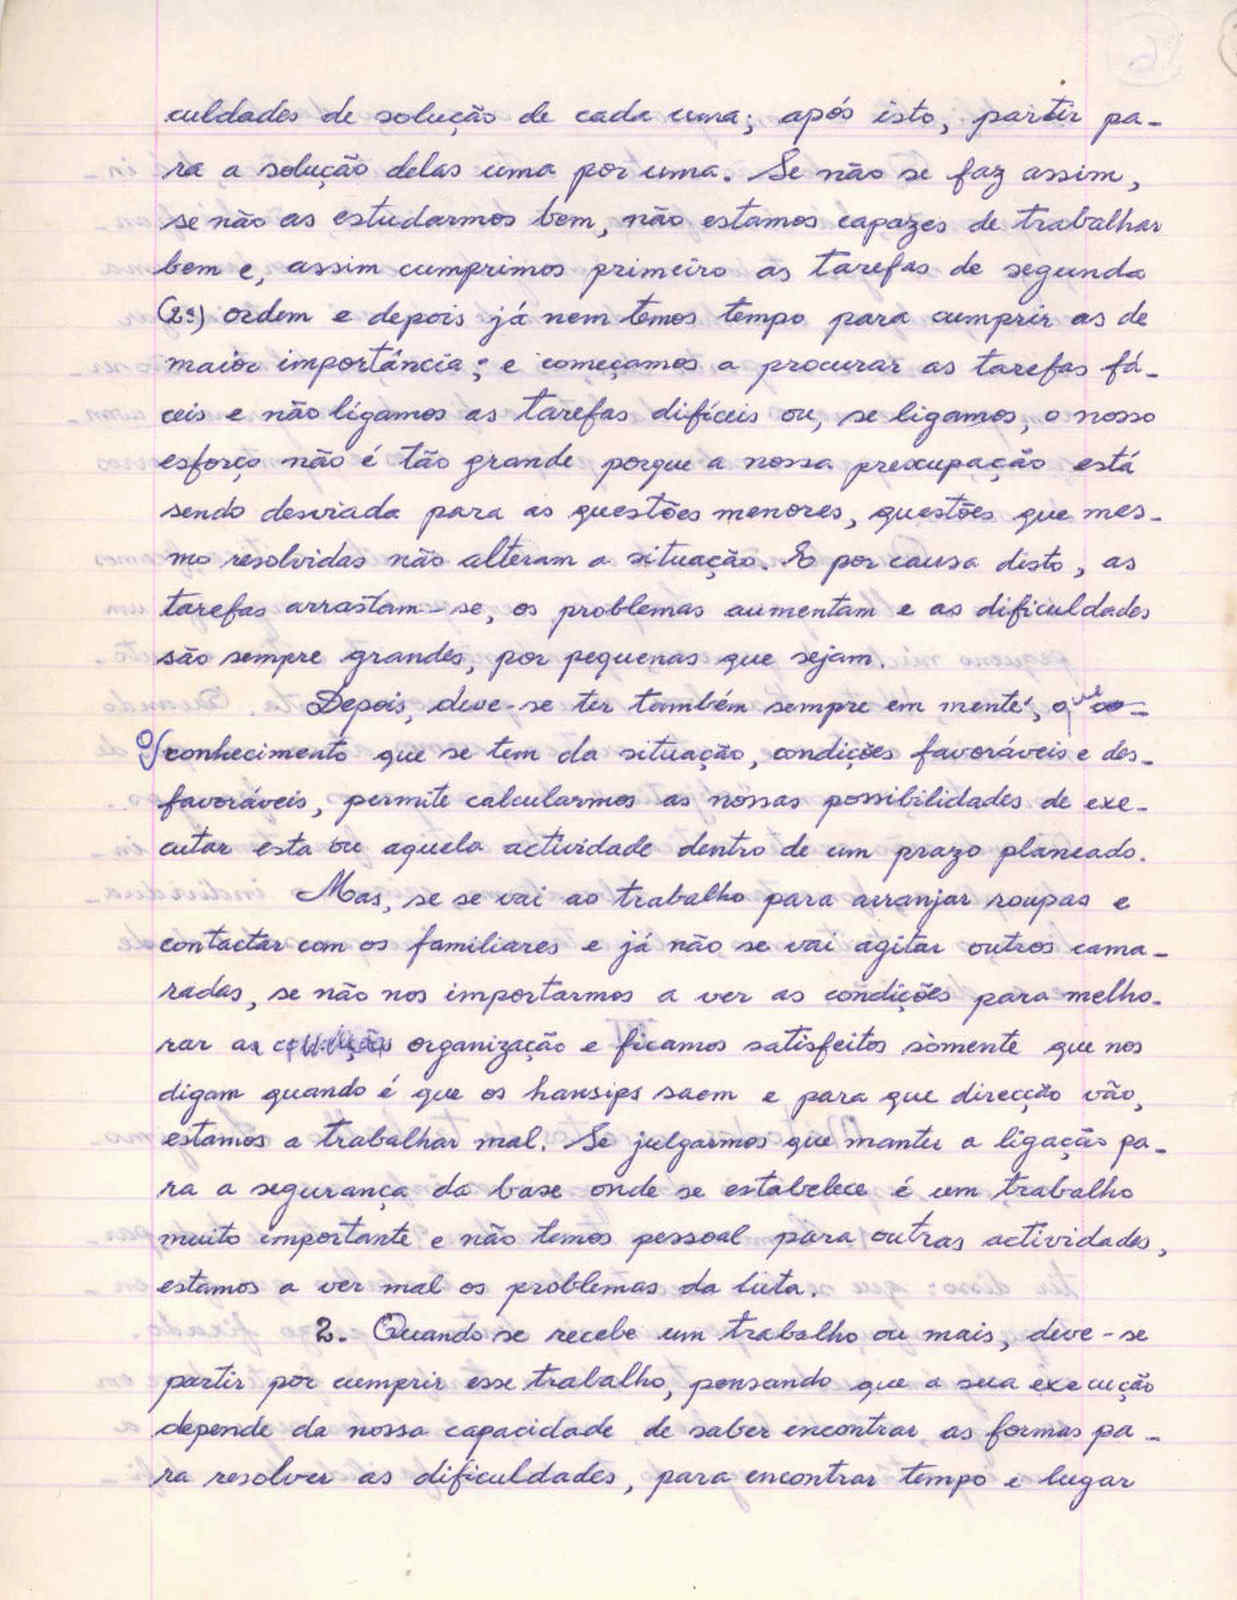 culdades de solução de cada uma; após isto, partir pa-
ra a solução delas uma por uma. Se não se faz assim,
se não as estudarmos bem, não estamos capazes de trabalhar
bem e, assim cumprimos primeiro as tarefas de segunda
(2ª) ordem e depois já nem temos tempo para cumprir as de
maior importância; e começamos a procurar as tarefas fá-
ceis e não ligamos as tarefas difíceis ou, se ligamos, o nosso
esforço não é tão grande porque a nossa preocupação está
sendo desviada para as questões menores, questões que mes-
mo resolvidas não alteram a situação. E por causa disto, as
tarefas arrastam-se, os problemas aumentam e as dificuldades
são sempre grandes, por pequenas que sejam.
Depois, deve-se ter também sempre em mente, que
o conhecimento que se tem da situação, condições favoráveis e des-
favoráveis, permite calcularmos as nossas possibilidades de exe-
cutar esta ou aquela actividade dentro de um prazo planeado.
Mas, se se vai ao trabalho para arranjar roupas e
contactar com os familiares e já não se vai agitar outros cama-
radas, se não nos importarmos a ver as condições para melho-
rar a organização e ficamos satisfeitos sòmente que nos
digam quando é que os hansips saem e para que direcção vão,
estamos a trabalhar mal. Se julgarmos que manter a ligação pa-
ra a segurança da base onde se estabelece é um trabalho
muito importante e não temos pessoal para outras actividades,
estamos a ver mal os problemas da luta.
2. Quando se recebe um trabalho ou mais, deve-se
partir por cumprir esse trabalho, pensando que a sua execução
depende da nossa capacidade de saber encontrar as formas pa-
ra resolver as dificuldades, para encontrar tempo e lugar